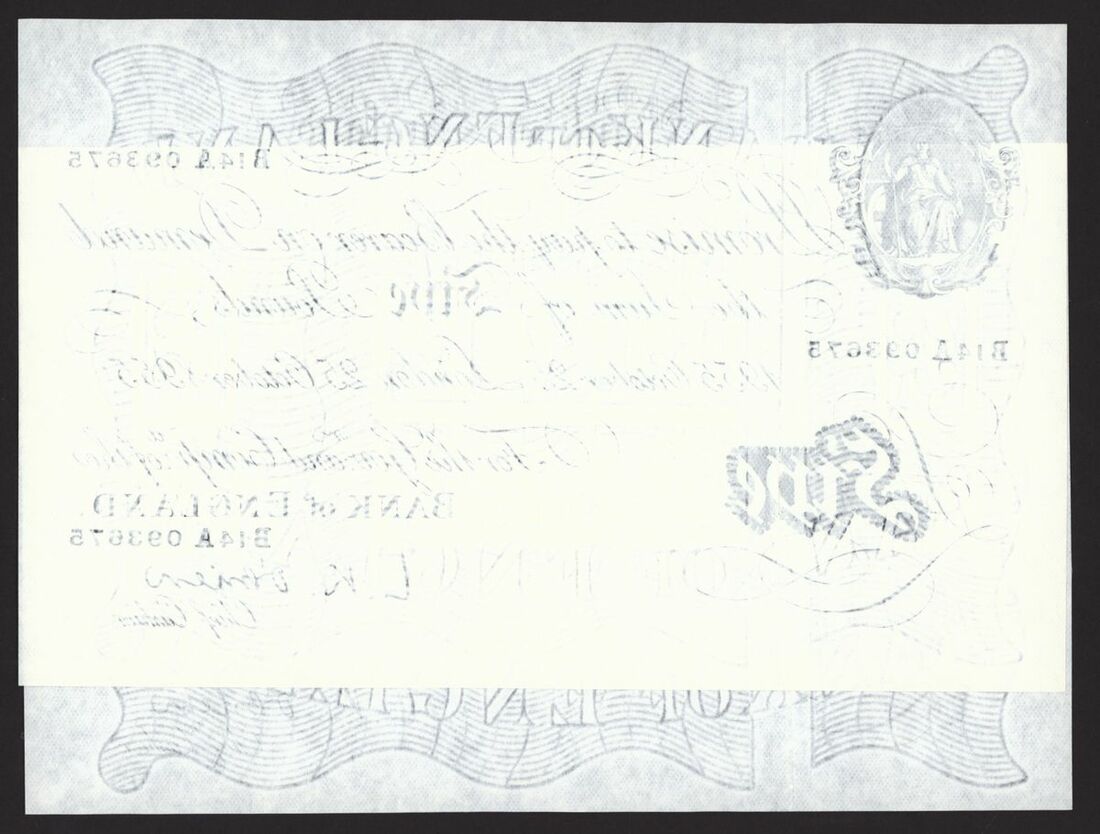 B14A 093675
I Promise to pay the Bearer on Demand
the Sum of Five Pounds
1955 October 25 London 25 October 1955
B14A 093675
For the Gov.r and Comp.a of the
BANK of ENGLAND.
Five
B14A 093675
L K O'Brien
Chief Cashier
OF ENGL